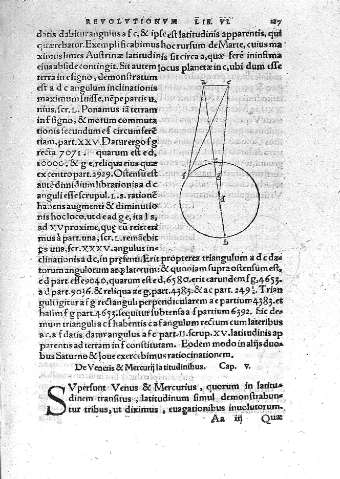 REVOLUTIONVM LIB. VI. 187
datis dabitur angulus a f c, & ipse est latitudinis apparentis, qui
quærebatur. Exemplificabimus hoc rursum de Marte, cuius ma
ximus limes Austrinæ latitudinis sit circa a, quæ ferè in infima
eius abside contingit. Sit autem locus planetæ in c, ubi dum esse
terra in e signo, demonstratum
est a d c angulum inclinationis
maximum fuisse, nempe partis u-
nius, scr. L. Ponamus iam terram
in f signo, & motum commuta
tionis secundum e f circumferen
tiam, part. XXV. Datur ergo f g
recta 7071. quarum est e d,
10000. & g e, reliqua eius quæ
ex centro part. 2929. Ostensum est
autem dimidium librationis a d c
anguli esse scrupul. L s. rationem
habens augmenti & diminutio
nis hoc loco, ut d e ad g e, ita L s,
ad XV proxime, quæ cum reiecerimus
à parte una, scr. L. remanebit
ps una, scr. XXXV. angulus in-
clinationis a d c, in præsenti. Erit propterea triangulum a d c da-
torum angulorum atque laterum: & quoniam supra ostensum est,
c d part. esse 9040, quarum est e d, 6580, erit earundem f g, 4653.
a d part. 9036. & reliqua a e g part. 4383. & a c part. 249
gulum igitur a f g rectanguli perpendicularem a e partium 4383. et
basim f g part. 4653. sequitur subtensa a f partium 6392. Sic de-
mum triangulum a c f habentis c a f angulum rectum cum lateribus
a c, a f datis, datur angulus a f c part. II. scrup. XV. latitudinis ap
parentis ad terram in f constitutam. Eodem modo in alijs duo-
bus Saturno & Ioue exercebimus ratiocinationem.
De Veneris & Mercurij latitudinibus. Cap. V.
SVpersunt Venus & Mercurius, quorum in latitu-
dinem transitus, latitudinum simul demonstrabun-
tur tribus, ut diximus, euagationibus inuolutorum.
Aa iij Quæ
a
c
e
f
g
d
b